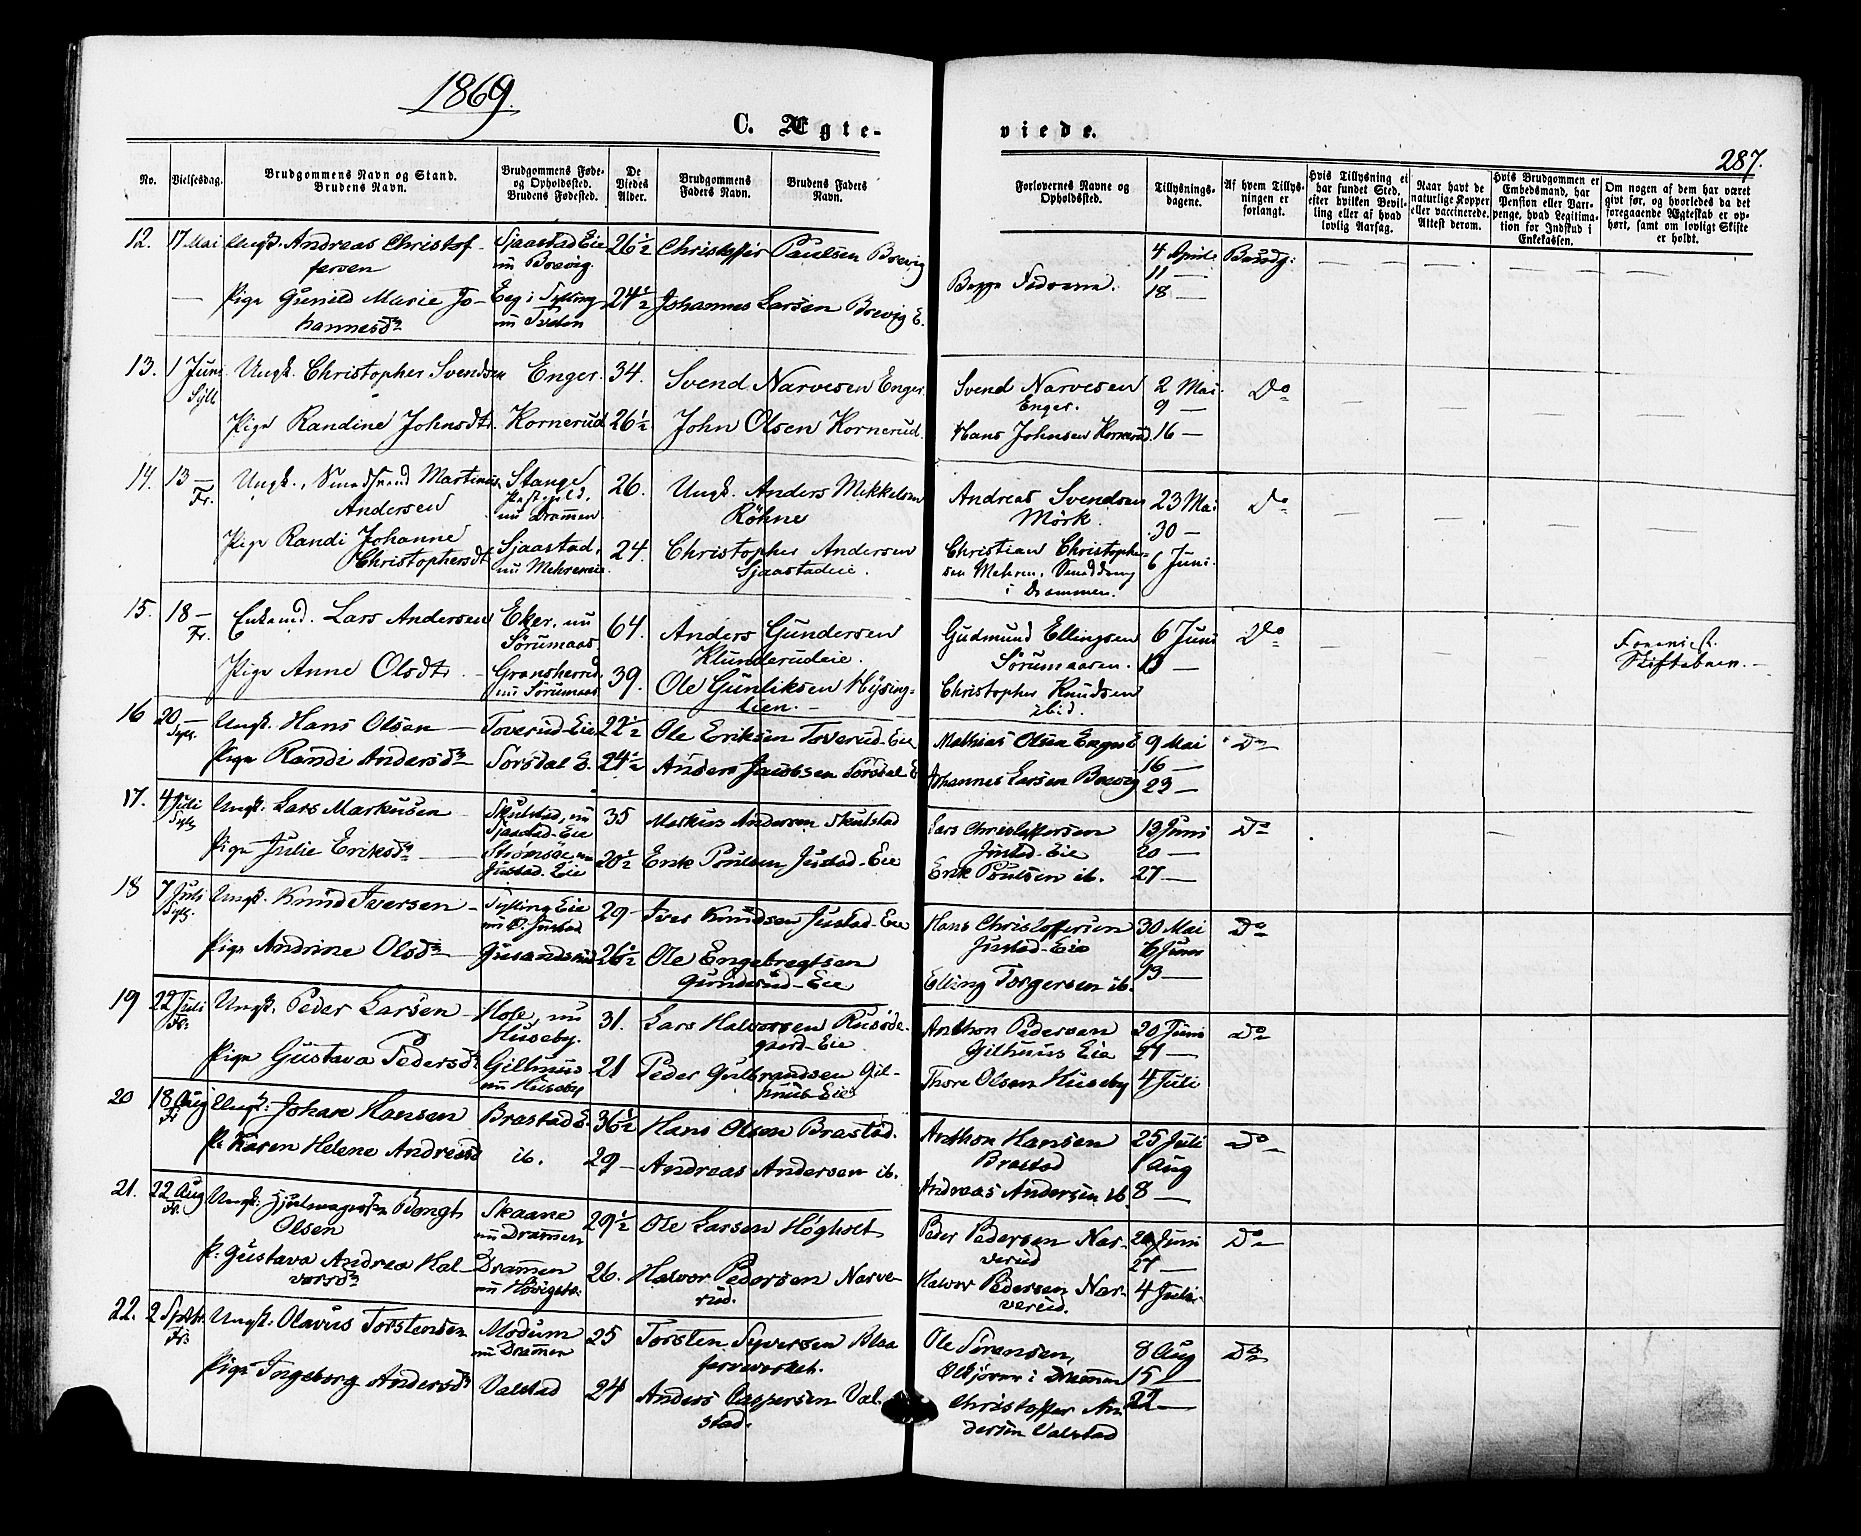 1869.
C. Ægte-
viede.
287.
No.
Vielsesdag.
Brudgommens Navn og Stand.
Brudens Navn.
Brudgommens Føde-
og Opholdssted.
Brudens Fødested.
De
Viedes
Alder.
Brudgommens
Faders Navn.
Brudens Faders
Navn.
Forlovernes Navne og
Opholdssted.
Tillysnings-
dagene.
Af hvem Tillys-
ningen er
forlangt.
Hvis Tillysning ei
har fundet Sted,
efter hvilken Bevil-
ling eller af hvad
lovlig Aarsag.
Naar havt de
naturlige Kopper
eller vaccinerede.
Attest derom.
Hvis Brudgommen er
Embedsmand, har
Pension eller Vart-
penge, hvad Legitima-
tion for Indskud i
Enkekassen.
Om nogen af dem har været
givt før, og hvorledes da det
foregaaende Ægteskab er op-
hørt, samt om lovligt Skifte
er holdt.
12. 17 Mai Ungk. Andreas Christof- Sjaastad Eie 26½ Christoffer Paulsen Brevig 4 April
fersen nu Brevig. Begge Fædrene. 11 —
— Pige Gunild Marie Jo- Eeg i Sylling 24½ Johannes Larsen Brevig E. 18 —
hannesdr nu
13. 1 Juni Ungk. Christopher Svendsen Enger. 34. Svend Narvesen Enger. Svend Narvesen 2 Mai Do
Sylt Enger. 9 —
Pige Randine Johnsdtr. Kornerud 26½ John Olsen Kornerud. Hans Johnsen Kornerud. 16 —
14. 13 — Ungk., Martinius Stange 26. Ungk. Anders Mikkelsen Andreas Svendsen 23 Mai Do
Fr. Andersen Præstegjeld, nu Drammen. Röhne Mörk. 30 —
Pige Randi Johanne Sjaastad, 24. Christopher Andersen Christian Christopher- 6 Juni.
Christophersdt. nu Mehreneie Sjaastadeie. sen Mehren,
i Drammen.
15. 18 — Enkemd. Lars Andersen Eker, nu 64. Anders Gundersen Gudmund Ellingsen 6 Juni Do
Fr. Sørumaas Klunderudeie. Sørumaasen. 13 —
Pige Anne Olsdtr. Gransherred nu Sørumaas 39. Ole Gunliksen Hysing- Christopher Knudsen
lien. — ibid. Skifteb
16 20 — Ungk. Hans Olsen — Toverud-Eie 22½ Ole Eriksen Toverud-Eie Mathias Olsen Enger E 9 Mai Do
Sylt. Pige Randi Andersdr Sørsdal E. 24½ Anders Jacobsen Sørsdal E 16 —
Johannes Larsen Brevig 23 —
17. 4 Juli Ungk. Lars Markusen Skulstad, nu 35 Markus Andersen Skulstad Lars Christoffersen 13 Juni Do
Sylt Sjaastad-Eie Justad-Eie 20 —
Pige Julie Eriksdr — Strømsøe, nu 20½ Erik Poulsen Justad-Eie Erik Poulsen ib. 27 —
Justad-Eie
18 7 Juli Ungk. Knud Iversen — Sylling Eie 29 — Iver Knudsen Justad-Eie Hans Christoffersen 30 Mai Do
Sylt. nu Ø. Justad Justad-Eie 6 Juni
Pige Andrine Olsdr — 26½ Ole Engebregtsen Elling Torgersen ib. 13 —
Gunderud-Eie
19 22 Juli Ungk. Peder Larsen — Hole, nu 31. Lars Halvorsen Rusøde- Anthon Pedersen 20 Juni Do
Fr. Huseby. gaard-Eie Gilhuus Eie 27 —
Pige Gustava Pedersdr Gilhuus 21 Peder Gulbrandsen Gil- Thore Olsen Huseby 4 Juli
nu Huseby huus-Eie
20 18 Aug Ungk: Johan Hansen Brastad E. 36½ Hans Olsen Brastad. Anthon Hansen 25 Juli Do
Fr Brastad 1 Aug
P: Karen Helene Andreasd ib. 29 — Andreas Andersen ib. Andreas Andersen ib 8 —
21. 22 Aug Ungk: Hjulmager Bengt Skaane 29½ Ole Larsen Høgholt Peder Pedersen Nar- 20 Juni Do
Fr. Olsen nu Drammen verud 27 —
P: Gustava Andrea Hal- Drammen 26. Halvor Pedersen Narve- Halvor Pedersen Nar- 4 Juli
vorsdr rud. verud.
22. 2 Septbr. Ungk: Olavus Torstensen Modum 25 Torsten Syversen Blaa Ole Sørensen, 8 Aug Do
Fr: nu Drammen farveverket. i Drammen 15 —
Pige Ingeborg Andersdr Valstad 24 Anders Caspersen Val- Christoffer An 22 —
stad. dersen Valstad